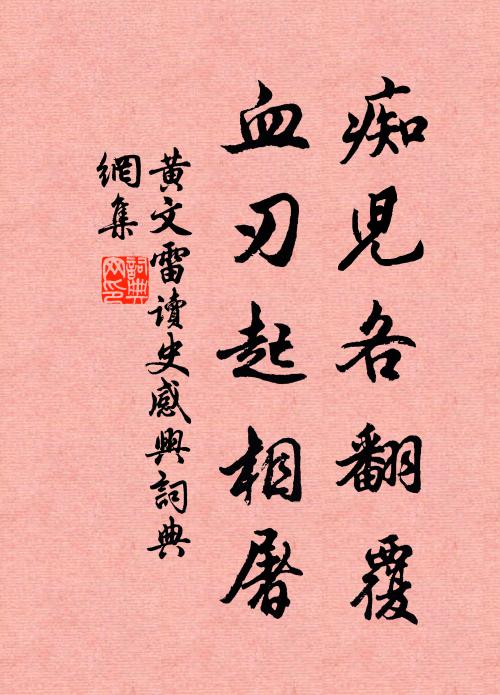 痴児各翻覆
血刃起相屠
黃文雷讀史感興詞典
網集
詞典網印